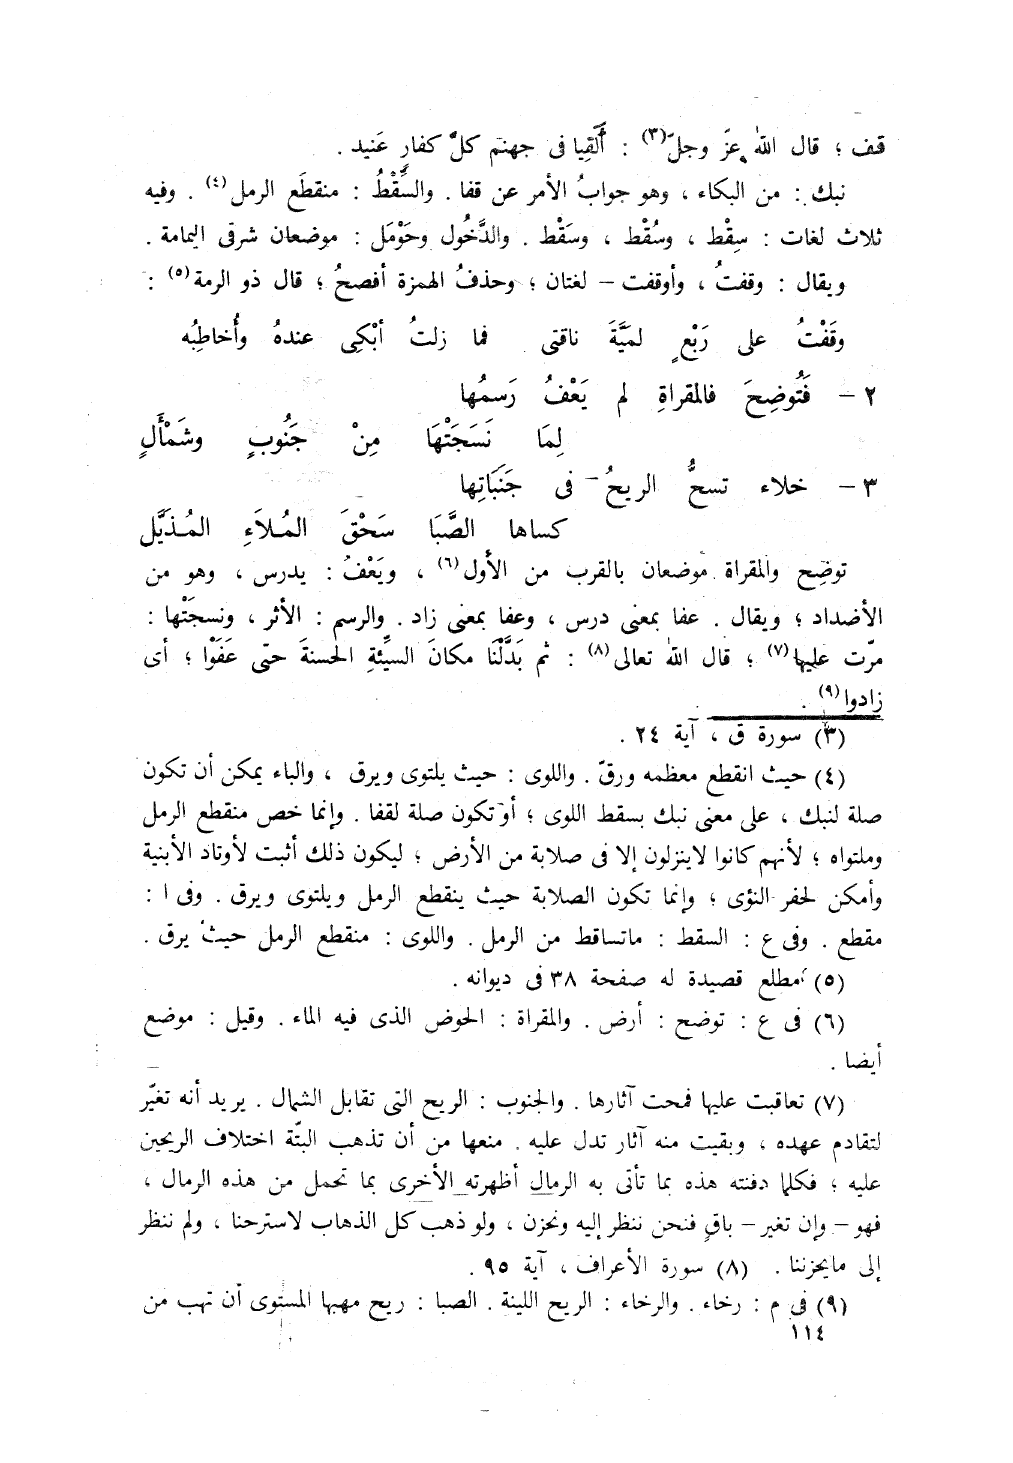 قف ؛ قال الله عزّ وجلّ(٣) : أَلْقِيا فى جهنم كلَّ كفارٍ عَنيد .
نبك : من البكاء ، وهو جوابُ الأمر عن قفا . والسِّقْطُ : منقطَع الرمل(٤) . وفيه
ثلاث لغات : سِقْط ، وسُقْط ، وسَقْط . والدَّخُول وحَوْمَل : موضعان شرقى اليمامة .
ويقال : وقفتُ ، وأوقفت – لغتان ؛ وحذفُ الهمزة أفصحُ ؛ قال ذو الرمة(٥) :
وقَفْتُ على رَبْعٍ لميَّةَ ناقتى فما زلتُ أبْكِى عندهُ وأُخاطِبُه
٢ – فَتُوضِحَ فالمقراةِ لم يَعْفُ رَسمُها
لِمَا نَسَجَتْهَا مِنْ جَنُوبٍ وشَمْأَلٍ
٣ – خلاء تسحُّ الريحُ فى جَنَبَاتِها
كساها الصَّبَا سَحْقَ المُلاَءِ المُذَيَّل
توضِح والمقراة موضعان بالقرب من الأول(٦) ، ويَعْفُ : يدرس ، وهو من
الأضداد ؛ ويقال . عفا بمعنى درس ، وعفا بمعنى زاد . والرسم : الأثر ، ونسجَتْها :
مرّت عليها(٧) ؛ قال الله تعالى(٨) : ثم بَدَّلْنَا مكانَ السيِّئةِ الحسنةَ حتى عَفَوْا ؛ أى
زادوا(٩) .
(٣) سورة ق ، آية ٢٤ .
(٤) حيث انقطع معظمه ورقّ . واللوى : حيث يلتوى ويرق ، والباء يمكن أن تكون
صلة لنبك ، على معنى نبك بسقط اللوى ؛ أو تكون صلة لقفا . وإنما خص منقطع الرمل
وملتواه ؛ لأنهم كانوا لاينزلون إلا فى صلابة من الأرض ؛ ليكون ذلك أثبت لأوتاد الأبنية
وأمكن لحفر النؤى ؛ وإنما تكون الصلابة حيث ينقطع الرمل ويلتوى ويرق . وفى ا :
مقطع . وفى ع : السقط : ماتساقط من الرمل . واللوى : منقطع الرمل حيث يرق .
(٥) مطلع قصيدة له صفحة ٣٨ فى ديوانه .
(٦) فى ع : توضح : أرض . والمقراة : الحوض الذى فيه الماء . وقيل : موضع
أيضا .
(٧) تعاقبت عليها فمحت آثارها . والجنوب : الريح التى تقابل الشمال . يريد أنه تغيّر
لتقادم عهده ، وبقيت منه آثار تدل عليه . منعها من أن تذهب البتّة اختلاف الريحين
عليه ؛ فكلما دفنته هذه بما تأتى به الرمال أظهرته الأخرى بما تحمل من هذه الرمال ،
فهو – وإن تغير – باقٍ فنحن ننظر إليه ونحزن ، ولو ذهب كل الذهاب لاسترحنا ، ولم ننظر
إلى مايحزننا . (٨) سورة الأعراف ، آية ٩٥ .
(٩) فى م : رخاء . والرخاء : الريح اللينة . الصبا : ريح مهبها المستوى أن تهب من
١١٤